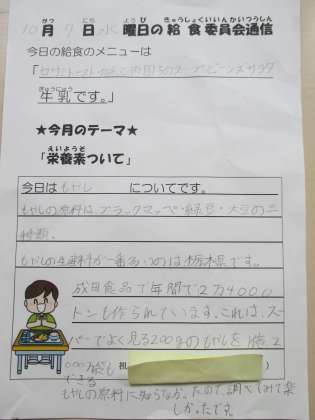 10月7日水曜日の給食委員会通信
今日の給食のメニューは
牛乳です。」
★今月のテーマ★
「栄養素ついて」
今日はもやしについてです。
もやしの原料は、ブラックマッペ・緑豆・大豆の三
種類。
もやしの生産料が一番多いのは栃木県です。
成田食品で年間で2万4000
トンも作られています。これは、スー
パーでよく見る200gのもやしを1億2
もやしの原料に知らなかったので、調べてみて楽
しかったです